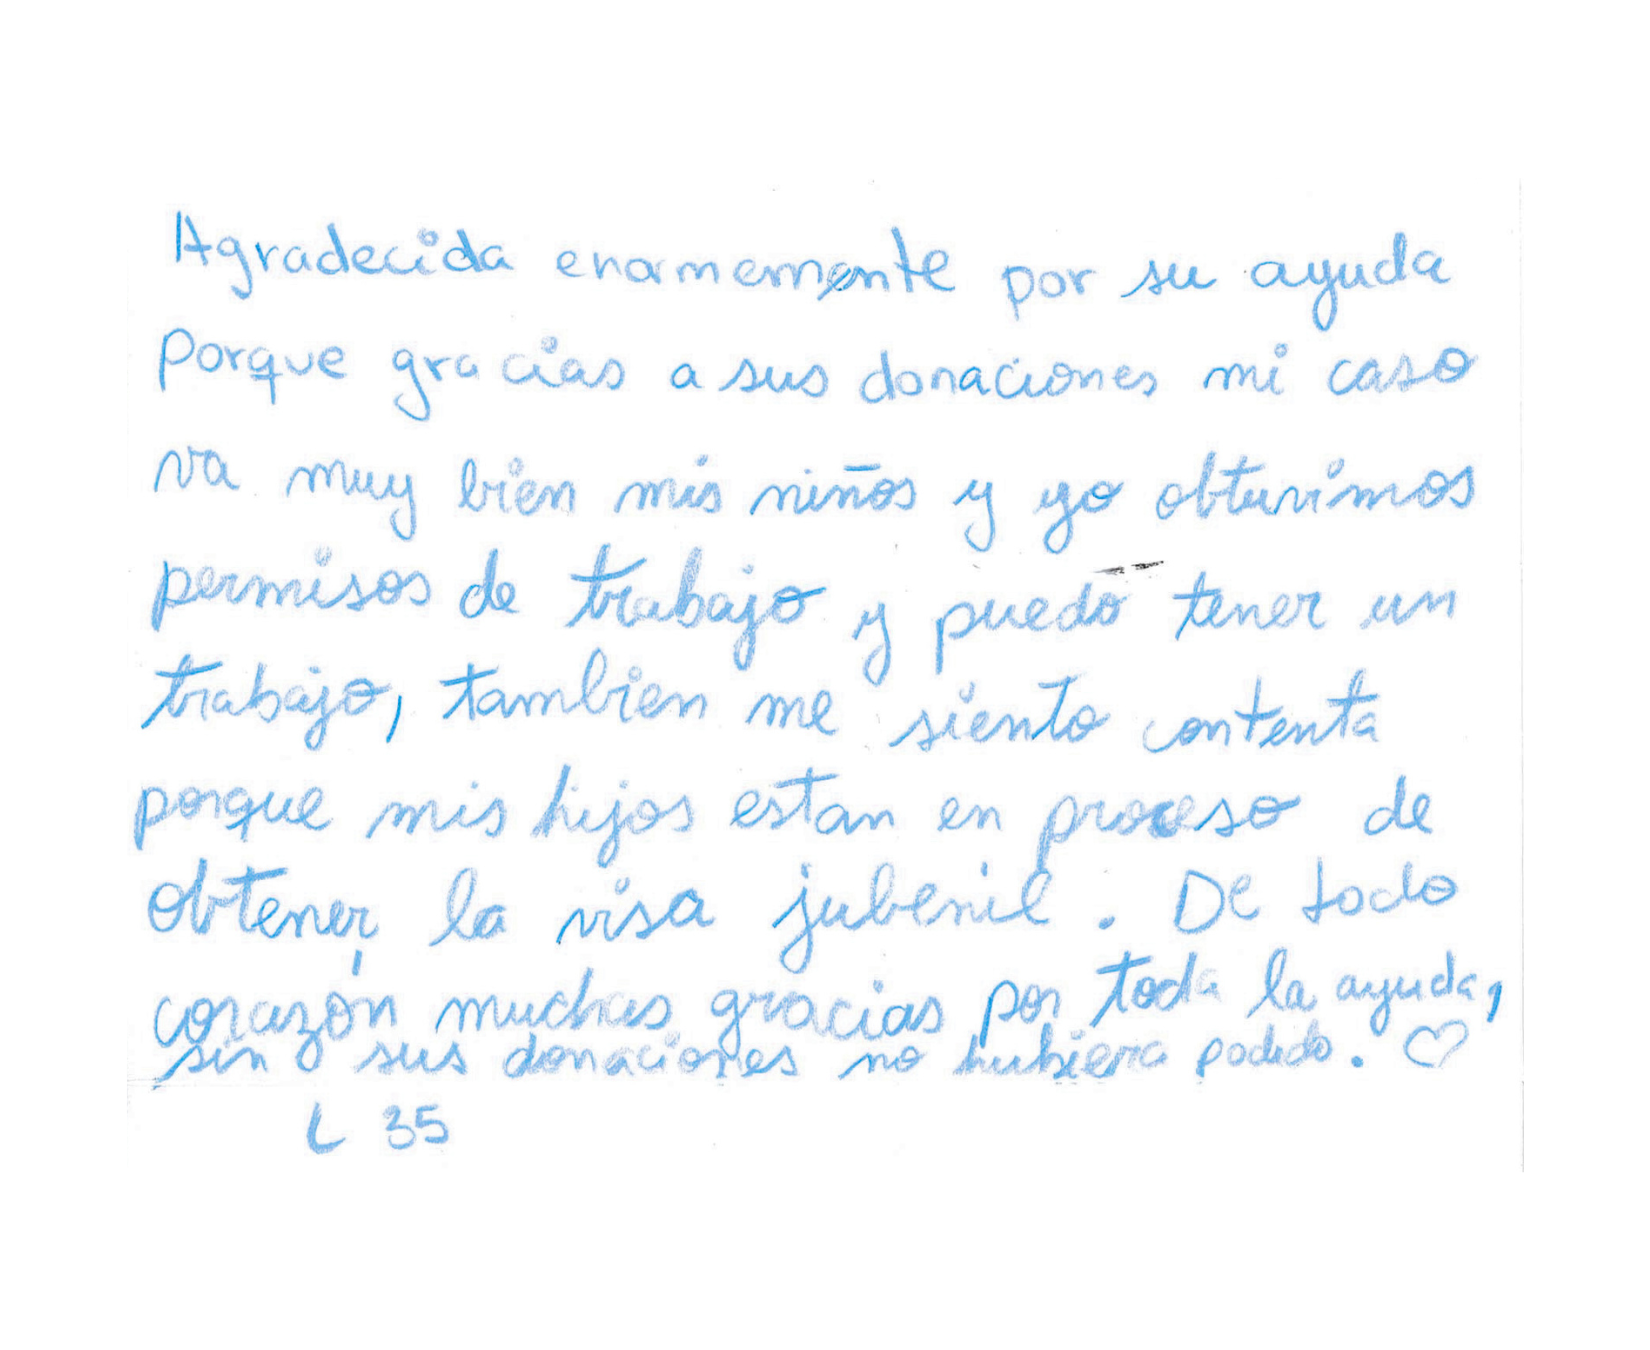 Agradecida enormemente por su ayuda
porque gracias a sus donaciones mi caso
va muy bien mis niños y yo obtuvimos
permisos de trabajo y puedo tener un
trabajo, tambien me siento contenta
porque mis hijos estan en proceso de
obtener la visa jubenil. De todo
corazón muchas gracias por toda la ayuda,
sin sus donaciones no hubiera podido. ♡
L 35